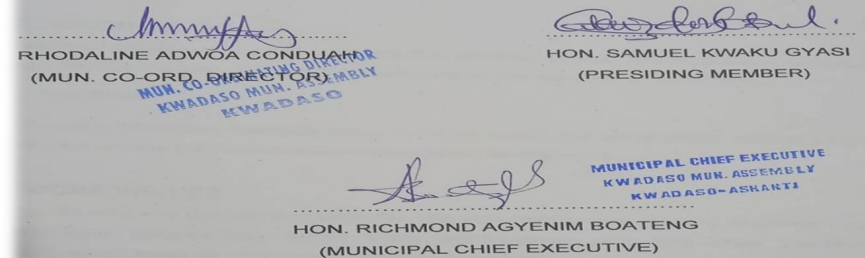 RHODALINE ADWOA CONDUAH
(MUN. CO-ORD. DIRECTOR)
MUN. CO-ORDINATING DIRECTOR
KWADASO MUN. ASSEMBLY
KWADASO
HON. SAMUEL KWAKU GYASI
(PRESIDING MEMBER)
MUNICIPAL CHIEF EXECUTIVE
KWADASO MUN. ASSEMBLY
KWADASO-ASHANTI
HON. RICHMOND AGYENIM BOATENG
(MUNICIPAL CHIEF EXECUTIVE)